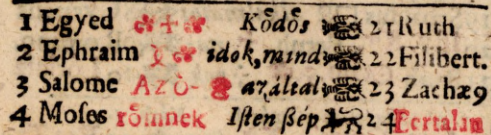 1 Egyed Kôdôs 21 Ruth
2 Ephraim idok, mind 22 Filibert.
3 Salome Az ô- az által 23 Zachæ9
4 Moſes rômnek Iſten ſzép 24 Bertalan